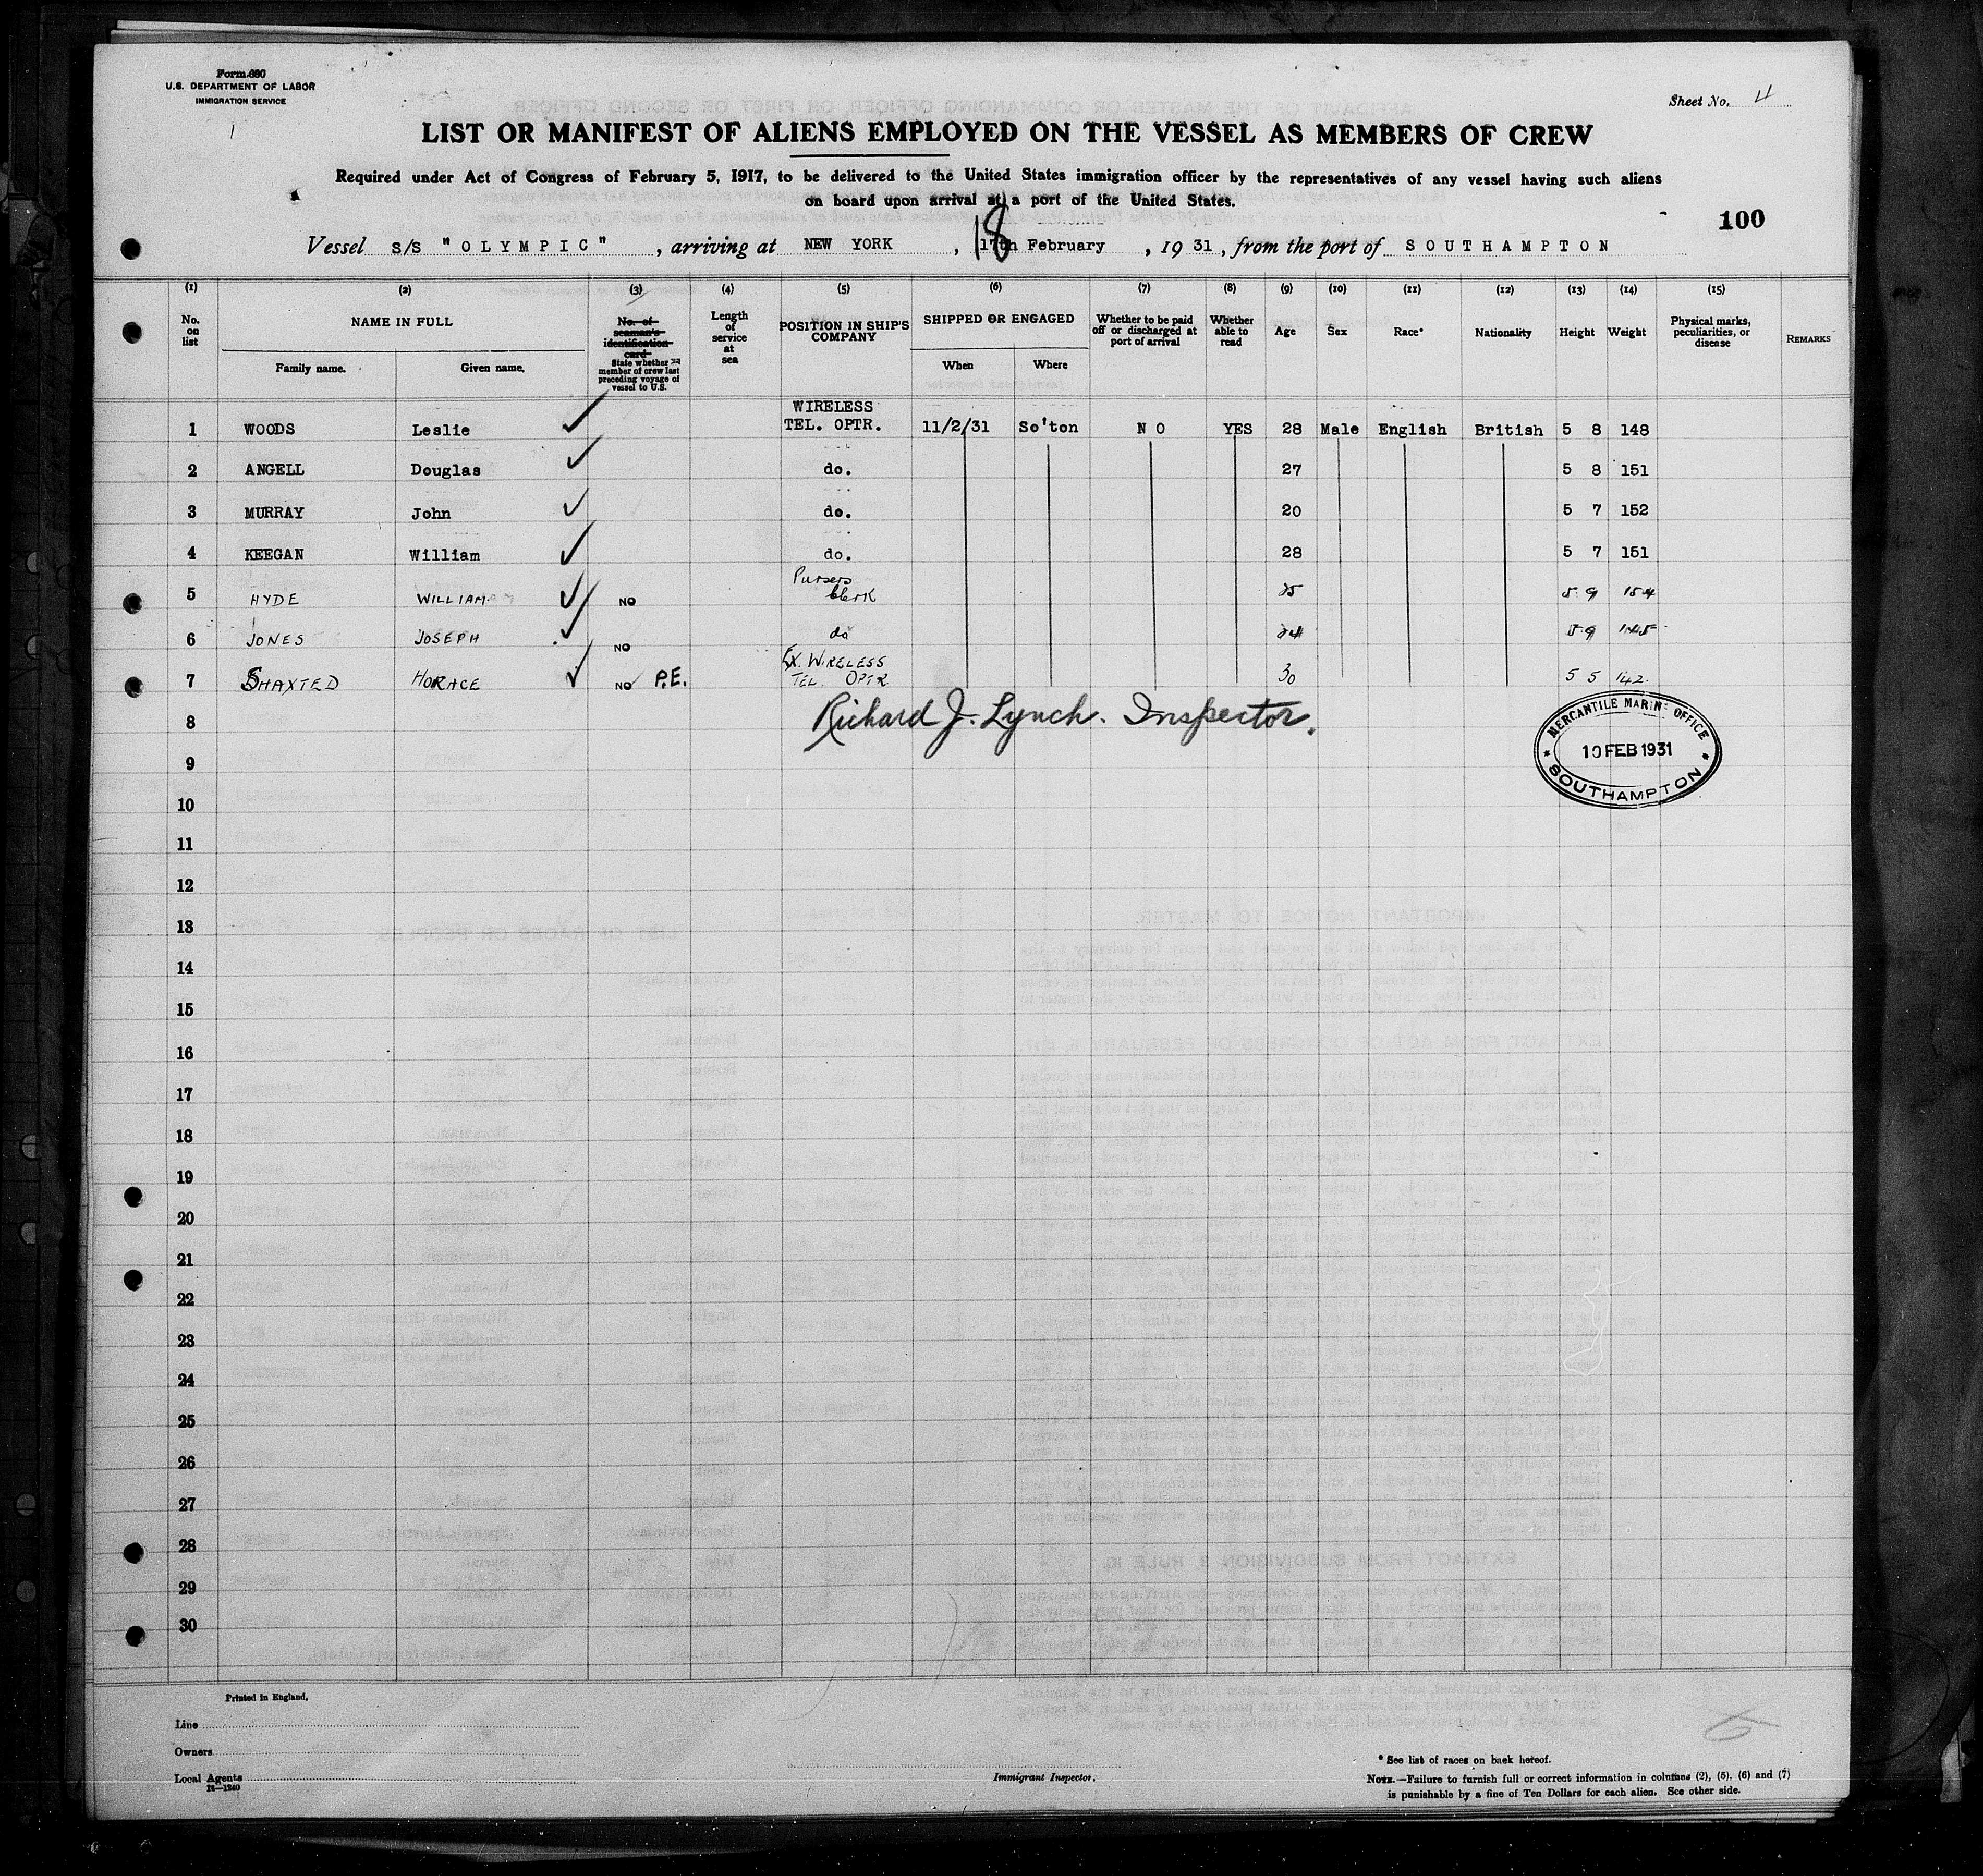 Form 680
U.S. DEPARTMENT OF LABOR
IMMIGRATION SERVICE
1
Sheet No. 4
LIST OR MANIFEST OF ALIENS EMPLOYED ON THE VESSEL AS MEMBERS OF CREW
Required under Act of Congress of February 5, 1917, to be delivered to the United States immigration officer by the representatives of any vessel having such aliens
on board upon arrival at a port of the United States.
100
Vessel S/S "OLYMPIC", arriving at NEW YORK, 17th February, 1931, from the port of SOUTHAMPTON
18
(1) (2) (3) (4) (5) (6) (7) (8) (9) (10) (11) (12) (13) (14) (15)
No. on list
NAME IN FULL
Family name. Given name.
No. of seaman's identification card
State whether member of crew last preceding voyage of vessel to U.S.
Length of service at sea
POSITION IN SHIP'S COMPANY
SHIPPED OR ENGAGED
When Where
Whether to be paid off or discharged at port of arrival
Whether able to read
Age
Sex
Race*
Nationality
Height
Weight
Physical marks, peculiarities, or disease
REMARKS
1 WOODS Leslie WIRELESS TEL. OPTR. 11/2/31 So'ton NO YES 28 Male English British 5 8 148
2 ANGELL Douglas do. 27 5 8 151
3 MURRAY John do. 20 5 7 152
4 KEEGAN William do. 28 5 7 151
5 HYDE WILLIAM NO Pursers Clerk 25 5.9 154
6 JONES JOSEPH NO do 24 5.9 145
7 SHAXTED HORACE NO P.E. EX. WIRELESS TEL. OPTR. 30 5 5 142.
8 Richard J. Lynch. Inspector.
MERCANTILE MARINE OFFICE
10 FEB 1931
SOUTHAMPTON
9
10
11
12
13
14
15
16
17
18
19
20
21
22
23
24
25
26
27
28
29
30
Printed in England.
Line
Owners
Local Agents
Immigrant Inspector.
* See list of races on back hereof.
NOTE.—Failure to furnish full or correct information in columns (2), (5), (6) and (7)
is punishable by a fine of Ten Dollars for each alien. See other side.